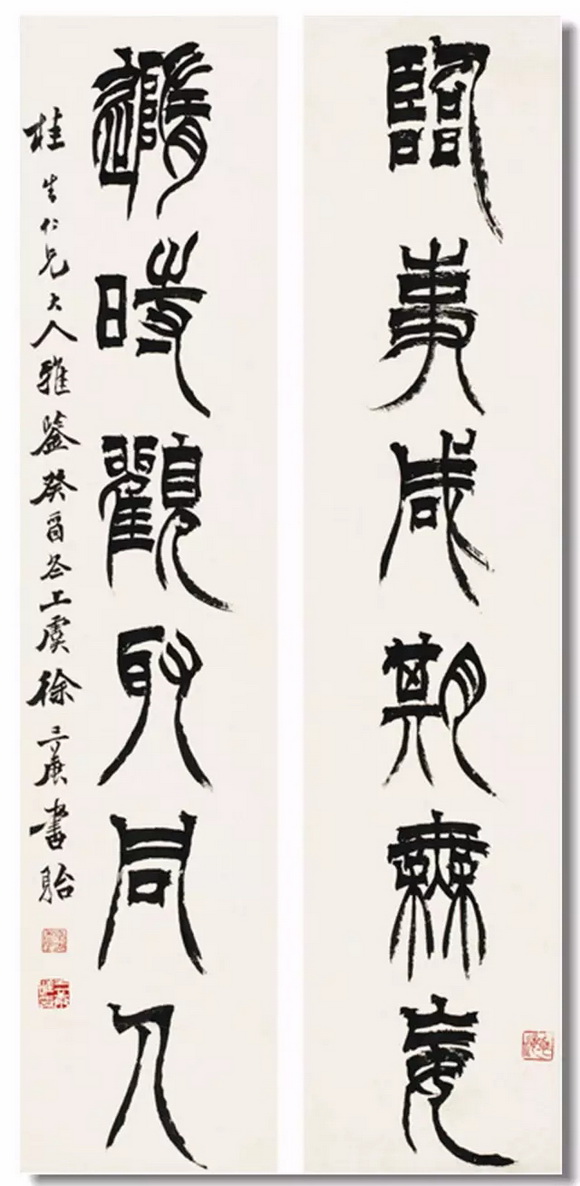 臨事咸期無妄
隨時觀取同人
桂生仁兄大人雅鑒癸酉冬上虞徐三庚書貽